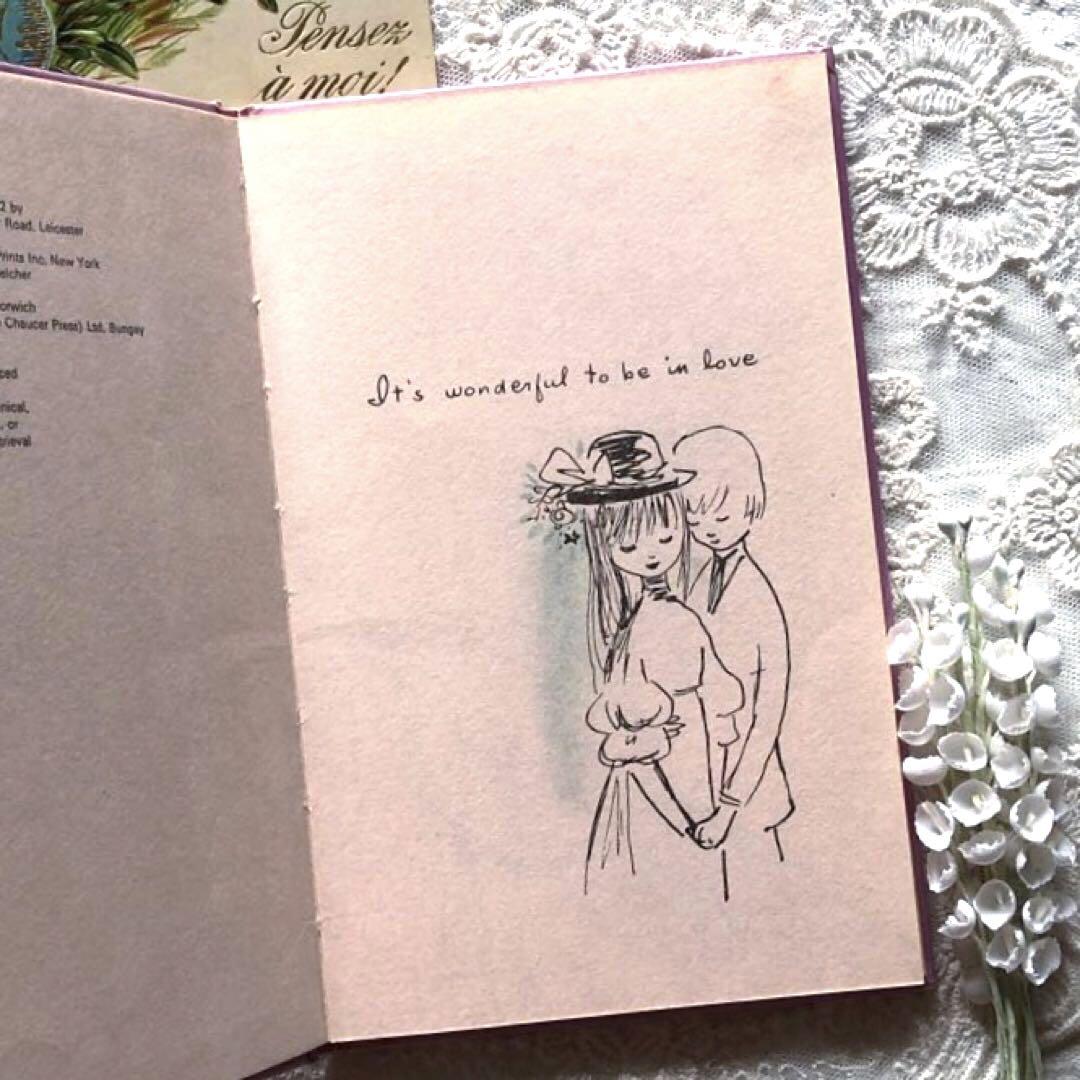 Pensez
à moi!
2 by
Road, Leicester
Prints Inc, New York
elcher
orwich
Chaucer Press) Ltd, Bungay
ced
nical,
, or
trieval
It's wonderful to be in love